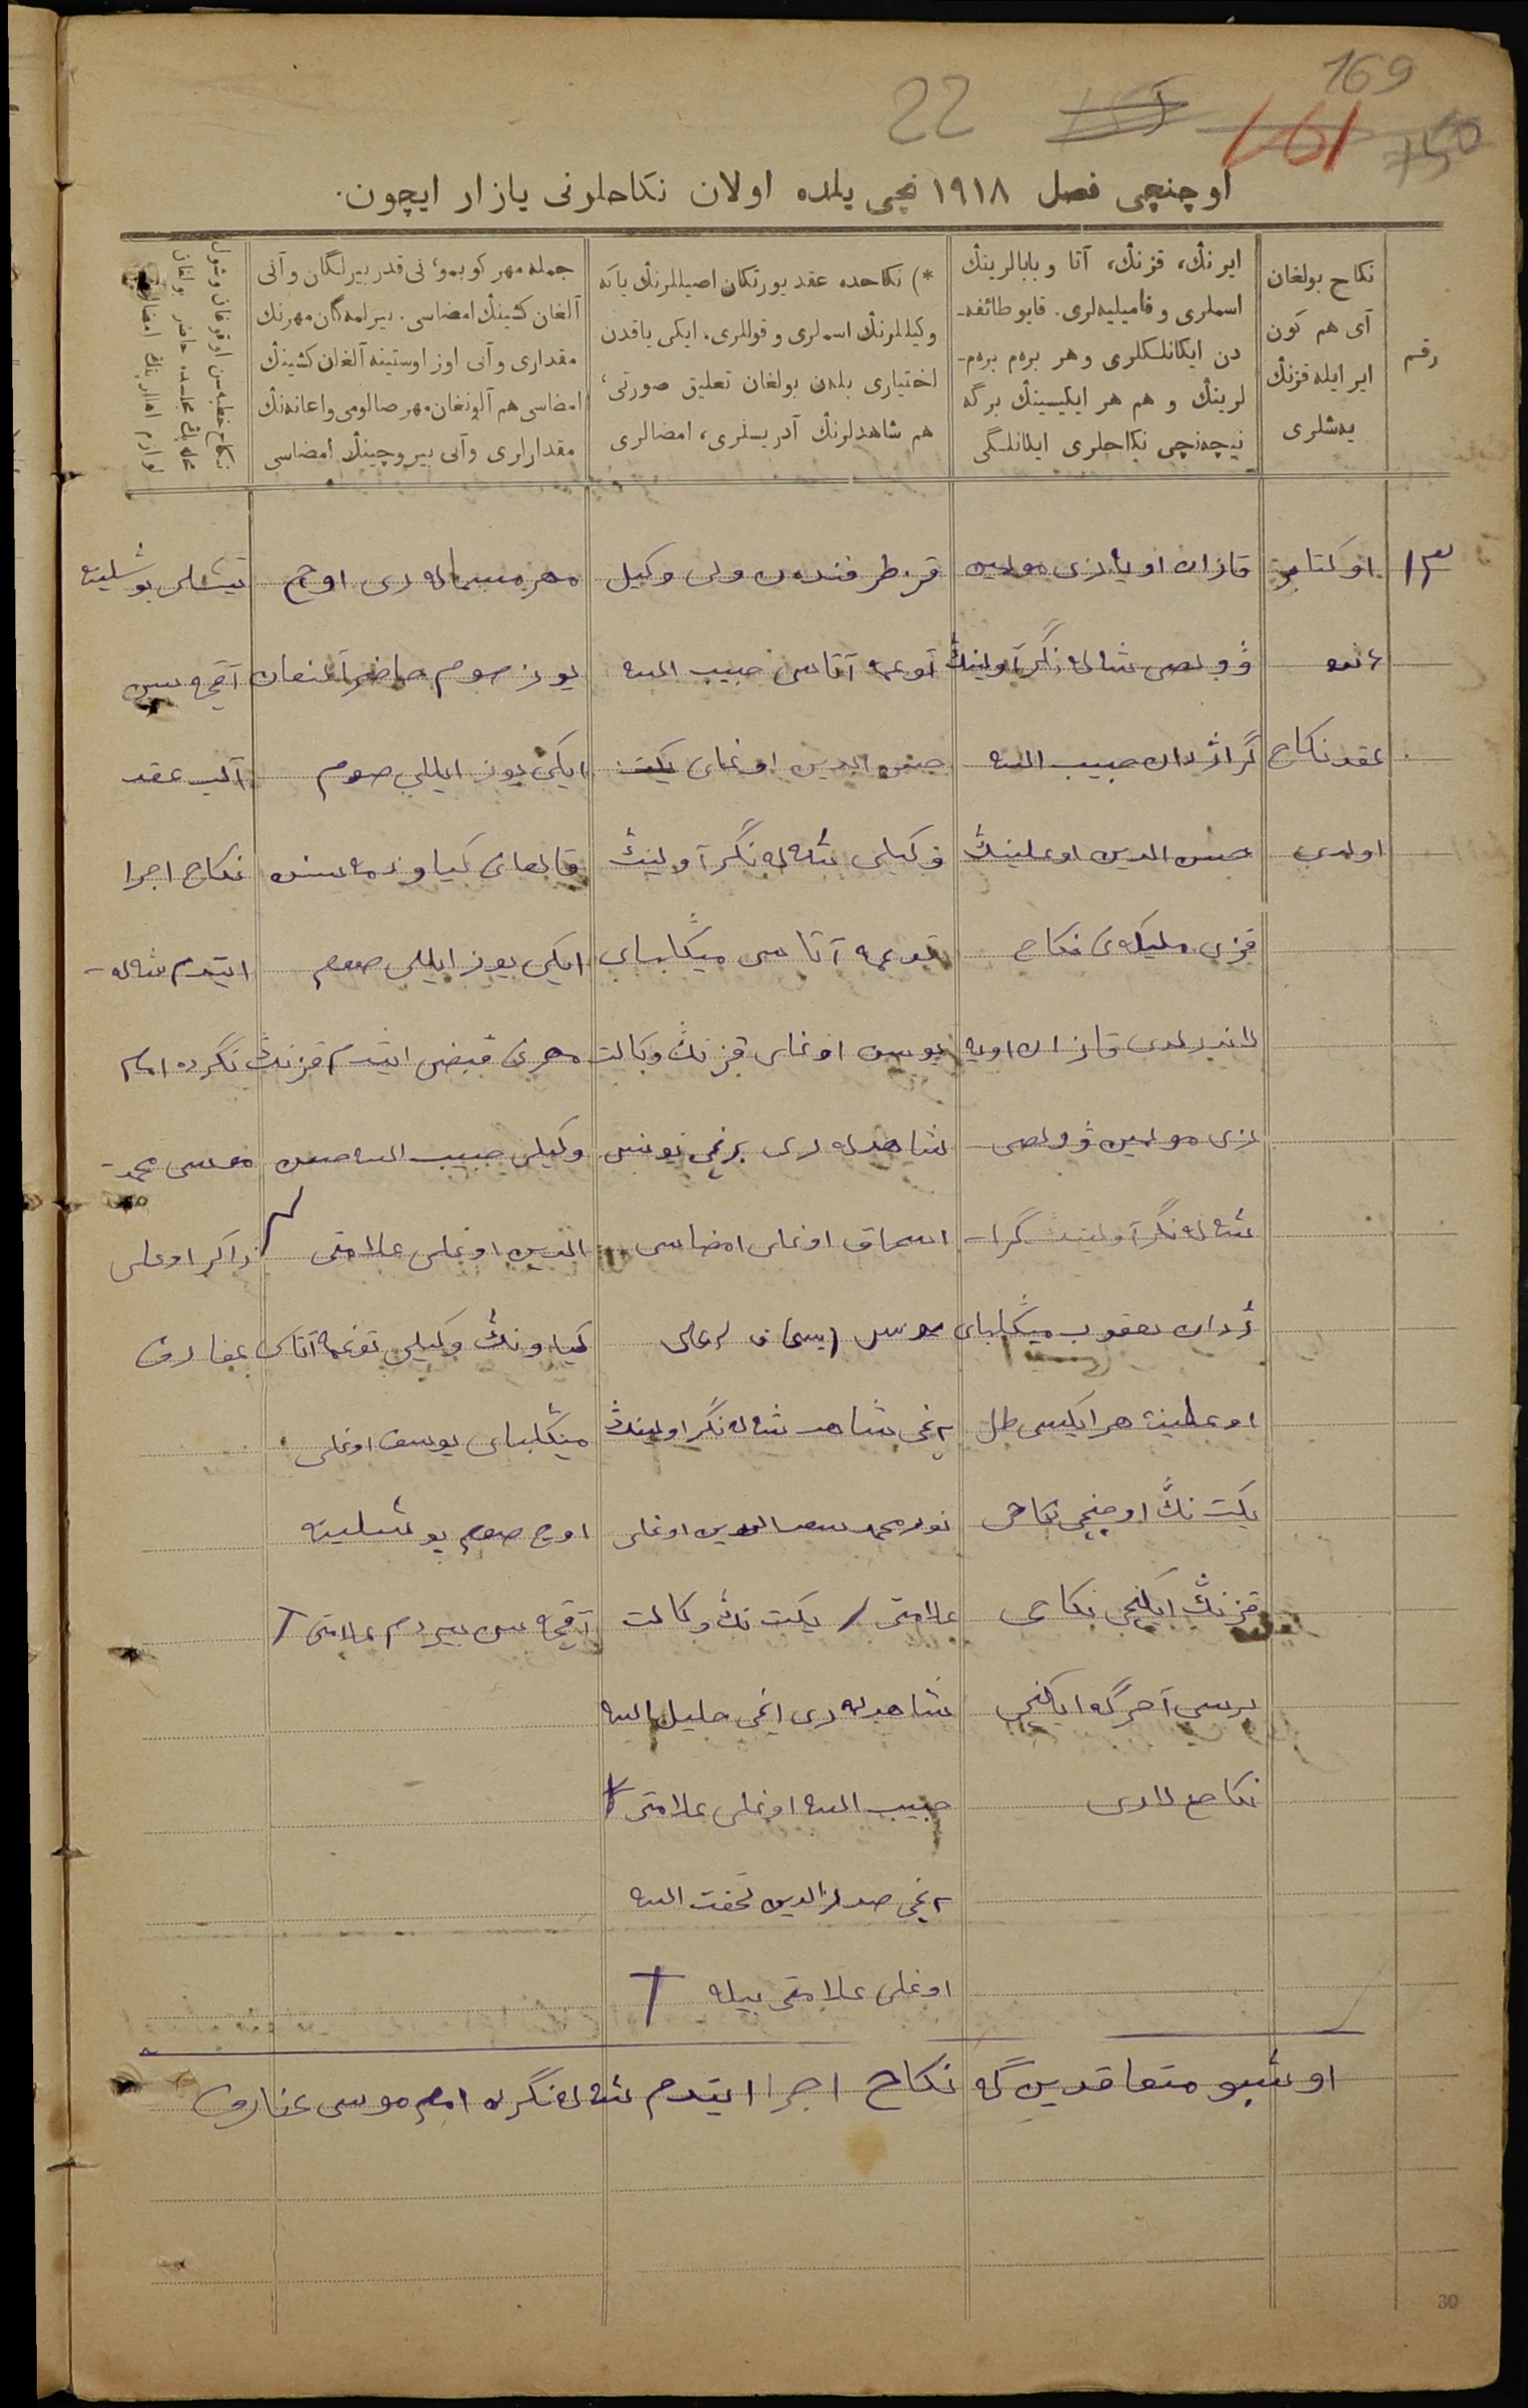 169
22
161
150
اوچنچی فصل ۱۹۱۸ نچی یلده اولان نکاحلرنی یازار ایچون.
رقم
نکاح بولغان
آی هم کون
ایر ایله قزنڭ
یەشلری
ایرنڭ، قزنڭ، آتا و بابالرینڭ
اسملری و فامیلیەلری. قایو طائفە-
دن ایکانلکلری و هر برەم برەم-
لرینڭ و هم هر ایکیسینڭ برگە
نیچەنچی نکاحلری ایکانلگی
*) نکاحده عقد یورتکان اصیللرنڭ یاکە
وکیللرنڭ اسملری و قوللری. ایکی یاقدن
اختیاری بلەن بولغان تعلیق صورتی،
هم شاهدلرنڭ آدریسلری، امضالری
جملە مهر کوبمو، نی قدر بیرلگان و آنی
آلغان کشینڭ امضاسی. بیرلمەگان مهرنڭ
مقداری و آنی اوز اوستینە آلغان کشینڭ
امضاسی هم آلونغان مهر صالومی و اعانەنڭ
مقدارلری و آنی بیروچینڭ امضاسی
نکاح خطبەسن اوقوغان وشول
۱۳
اوکتابر
عقد نکاح
اولدی
قازان اویازی مولمین
ڤولصی شاله نگر آولینڭ
گراژدان حبیب الله
حسن الدین اوغلینڭ
قزی ملیکەنی نکاح
لاندرلدی قازان اویە
زی مولمین ڤولصی
شاله نگر آولینڭ گرا-
ژدان یعقوب میڭلبای
اوغلینە هر ایکیسی
یکت نڭ اوچنچی نکاحی
قزنڭ ایکنچی نکاحی
برسی آخرگە ایکنچی
نکاحلاری
قز طرفندەن ولی وکیل
توغمە آتاسی حبیب الله
حسن الدین اوغلی یکت
وکیلی شاله نگر آولینڭ
توغمە آتاسی میڭلبای
یوسف اوغلی قزنڭ وکالت
شاهدلەری برنچی یونس
اسحاق اوغلی امضاسی
۲نچی شاهد شاله نگر اولینڭ
نورمحمد اوغلی
علامتی / یکت نڭ وکالت
شاهدلەری ۱نچی خلیل الله
حبیب الله اوغلی علامتی
۲نچی صدرالدین تحفت الله
اوغلی علامتی بیله T
مهر مسمالەری اوچ
یوز صوم حاضر آلنغان
ایکی یوز ایللی صوم
قالغان کیاو ذمەسنە
ایکی یوز ایللی صوم
مهرنی قبض ایتدم قزنڭ
وکیلی حبیب الله حسن
الدین اوغلی علامتی
کیاونڭ وکیلی توغمە آتاسی
میڭلبای یوسف اوغلی
اوچ صوم پوشلینە
آقچەسن بیردم علامتی T
تیشلی پوشلینە
آقچەسن
آلیب عقد
نکاح اجرا
ایتدم شاله-
نگردە امام
موسی محمد-
ذاکر اوغلی
غفاروف
اوشبو متعاقدین گە نکاح اجرا ایتدم شاله نگردە امام موسی غفاروف
30